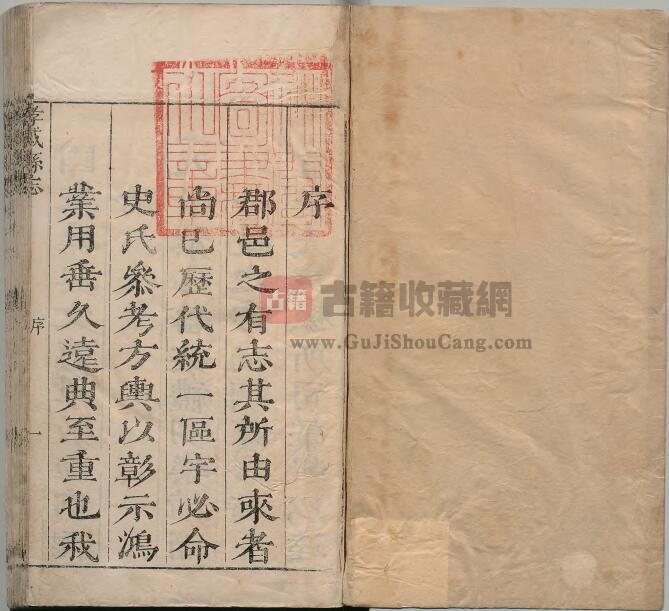 序
郡邑之有志其所由來者
尚已歷代統一區宇必命
史氏叅考方輿以彰示鴻
業用垂久遠典至重也我
縣志
序
一
古籍
古籍收藏網
www.GuJiShouCang.com